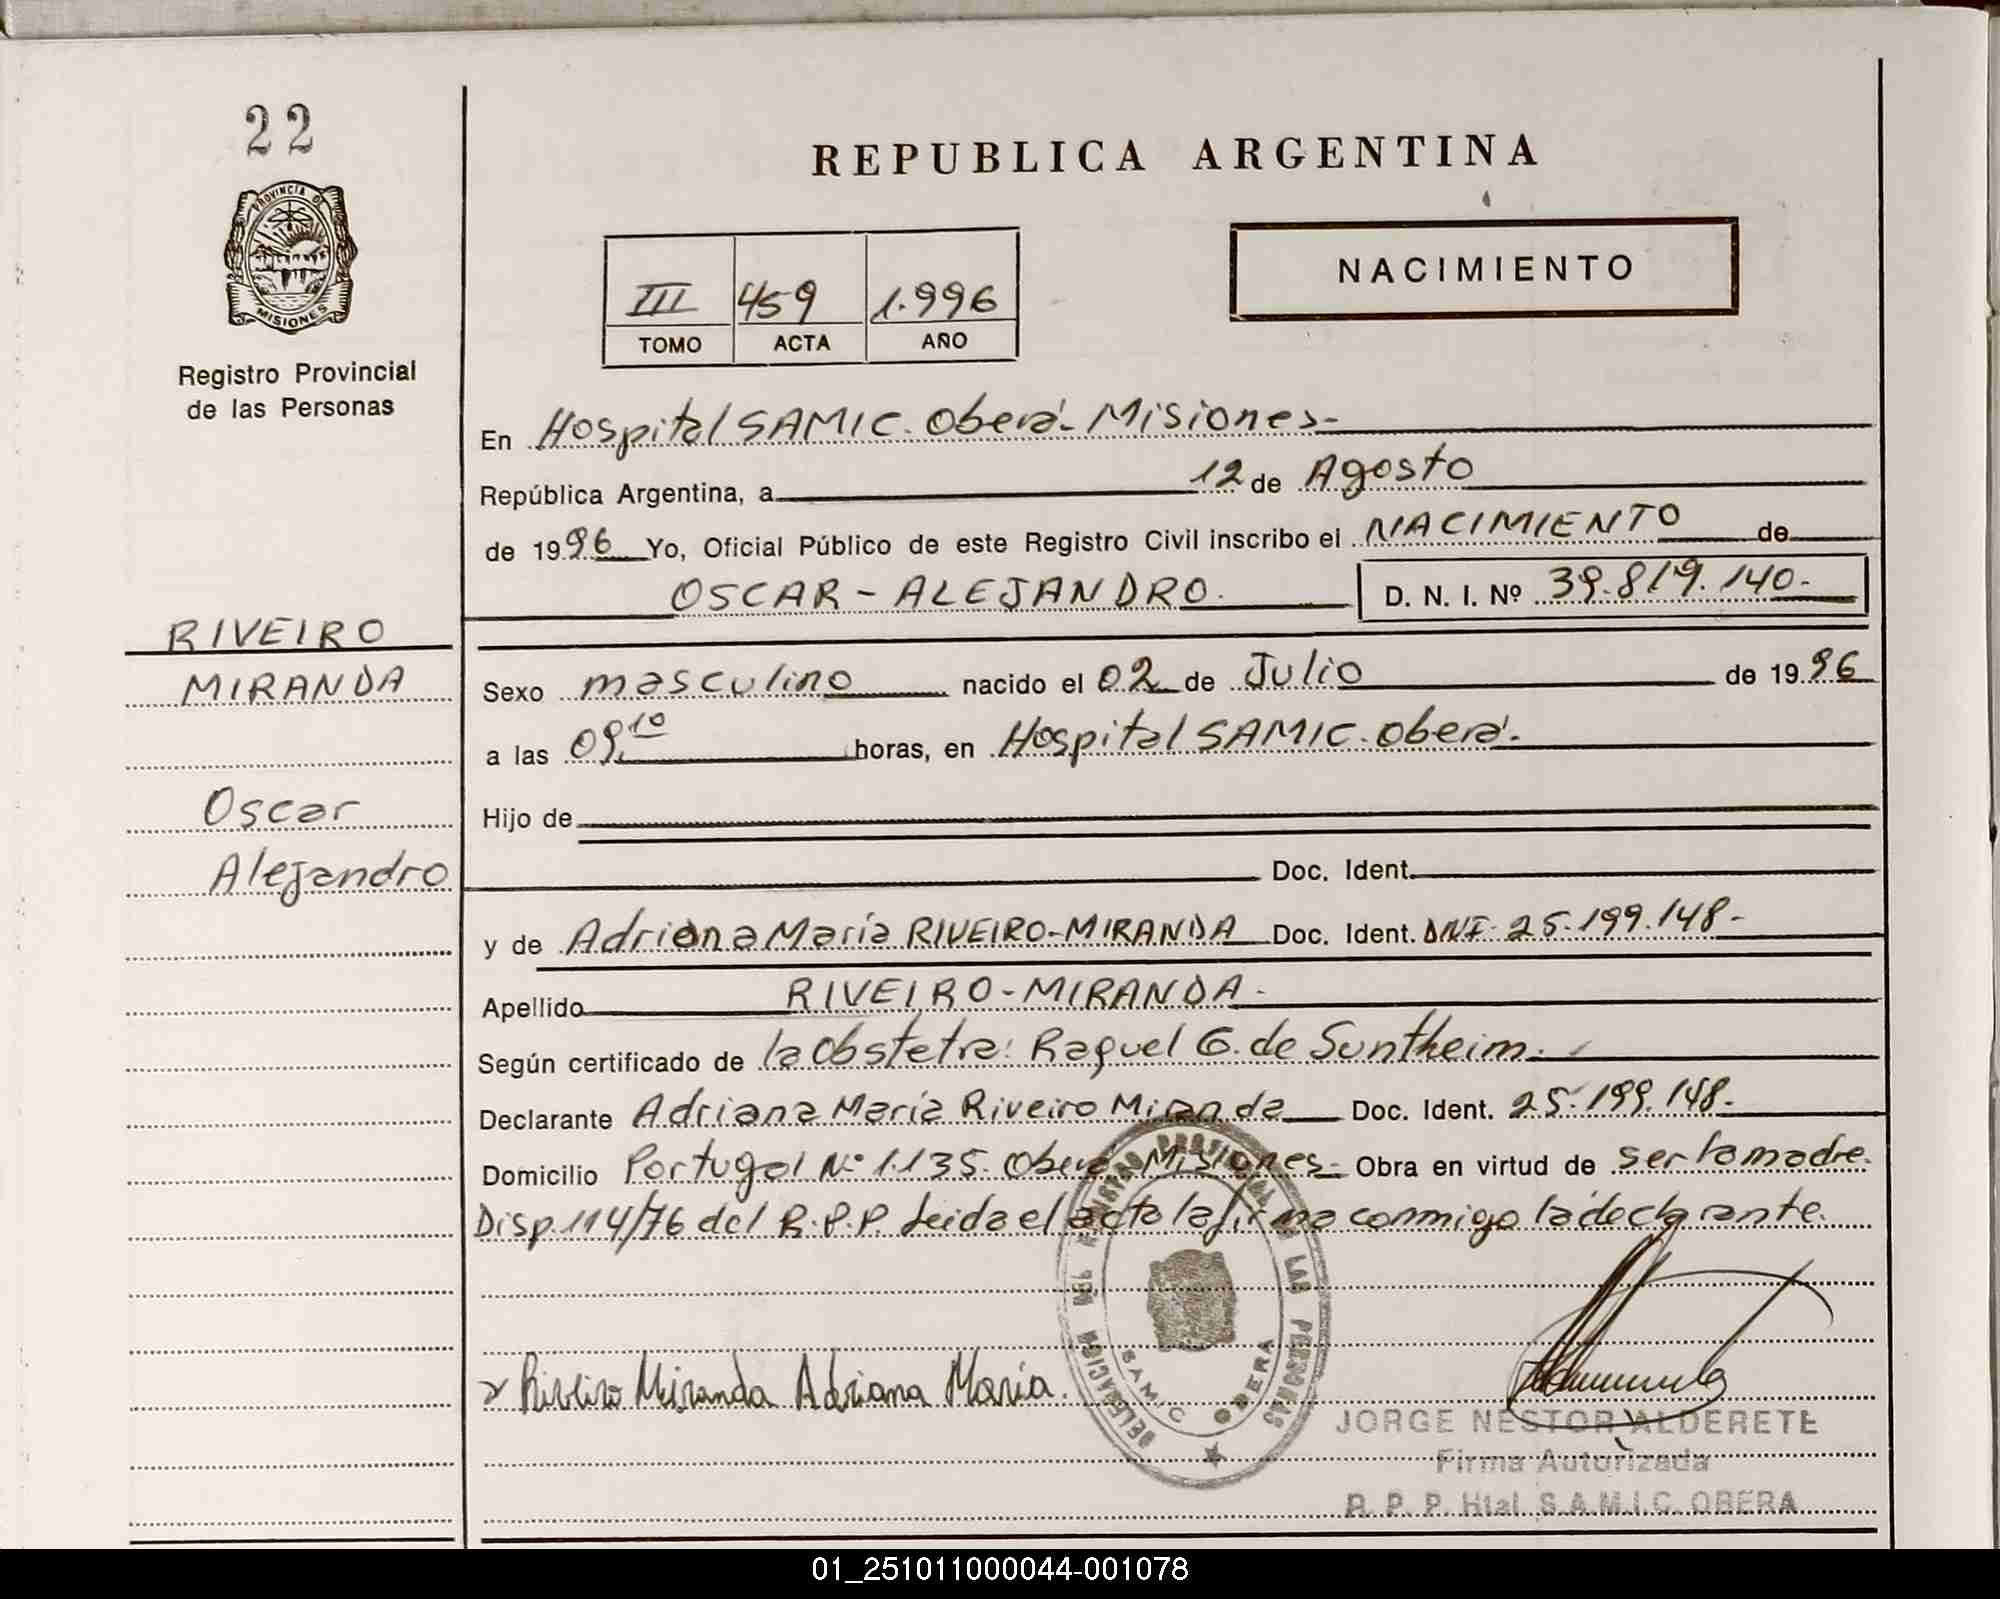 22
PROVINCIA DE
MISIONES
Registro Provincial
de las Personas
RIVEIRO
MIRANDA
Oscar
Alejandro
REPUBLICA ARGENTINA
III 459 1.996
TOMO ACTA AÑO
NACIMIENTO
En Hospital SAMIC. Oberá- Misiones-
República Argentina, a 12 de Agosto
de 1996 Yo, Oficial Público de este Registro Civil inscribo el NACIMIENTO de
OSCAR - ALEJANDRO. D. N. I. Nº 39.819.140-
Sexo masculino nacido el 02 de Julio de 1996
a las 09.10 horas, en Hospital SAMIC. Oberá.
Hijo de
Doc. Ident.
y de Adriana María RIVEIRO-MIRANDA Doc. Ident. DNI- 25.199.148-
Apellido RIVEIRO-MIRANDA-
Según certificado de la Obstetra: Raquel G. de Suntheim.
Declarante Adriana María Riveiro Miranda Doc. Ident. 25.199.148-
Domicilio Portugal Nº 1.135. Oberá Misiones- Obra en virtud de ser la madre.
Disp. 114/76 del R.P.P. Leida el acta la firma conmigo la declarante.
DELEGACION DEL REGISTRO PROVINCIAL DE LAS PERSONAS
S.A.M.I.C OBERA
Riveiro Miranda Adriana María.
JORGE NESTOR ALDERETE
Firma Autorizada
R. P. P. Htal. S.A.M.I.C. OBERA
01_251011000044-001078